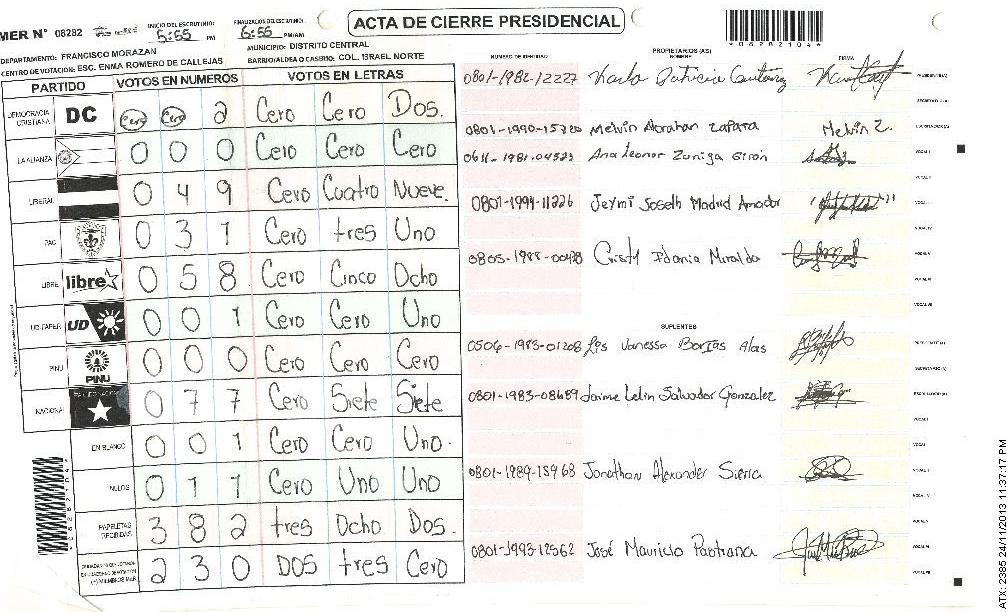 ACTA DE CIERRE PRESIDENCIAL
MER N° 08282 INICIO DEL ESCRUTINIO: 5:55 PM FINALIZACION DEL ESCRUTINIO: 6:55 PM/AM
*08282104*
DEPARTAMENTO: FRANCISCO MORAZAN MUNICIPIO: DISTRITO CENTRAL
CENTRO DE VOTACION: ESC. ENMA ROMERO DE CALLEJAS BARRIO/ALDEA O CASERIO: COL. ISRAEL NORTE
PARTIDO VOTOS EN NUMEROS VOTOS EN LETRAS
DEMOCRACIA CRISTIANA DC Cero Cero 2 Cero Cero Dos.
LA ALIANZA 0 0 0 Cero Cero Cero
LIBERAL 0 4 9 Cero Cuatro Nueve.
PAC 0 3 1 Cero tres Uno
LIBRE libre 0 5 8 Cero Cinco Ocho
UD-FAPER UD 0 0 1 Cero Cero Uno
PINU PINU 0 0 0 Cero Cero Cero
NACIONAL 0 7 7 Cero Siete Siete
EN BLANCO 0 0 1 Cero Cero Uno.
NULOS 0 1 1 Cero Uno Uno
PAPELETAS RECIBIDAS 3 8 2 tres Ocho Dos.
(+) MIEMBROS MER 2 3 0 DOS tres Cero
NUMERO DE IDENTIDAD PROPIETARIOS (AS) NOMBRE FIRMA
0801-1982-12227 Karla Patricia PRESIDENTE(A)
SECRETARIO(A)
0801-1990-15720 Melvin Abrahan Zapata Melvin Z. ESCRUTADOR(A)
0611-1981-04523 Ana Leonor Zuniga Giron VOCAL I
VOCAL II
0801-1994-11226 Jeymi Joseth Madrid Amador VOCAL III
VOCAL IV
0805-1988-00428 Cristy Idania Miralda VOCAL V
VOCAL VI
VOCAL VII
SUPLENTES
0506-1983-01208 Vanessa Borjas Alas PRESIDENTE(A)
SECRETARIO(A)
0801-1983-08689 Jaime Lelin Salvador Gonzalez ESCRUTADOR(A)
VOCAL I
VOCAL II
0801-1989-15968 Jonathan Alexander Sierra VOCAL III
VOCAL IV
VOCAL V
0801-1993-12562 José Mauricio Pastrana VOCAL VI
VOCAL VII
ATX: 2385 24/11/2013 11:37:17 PM